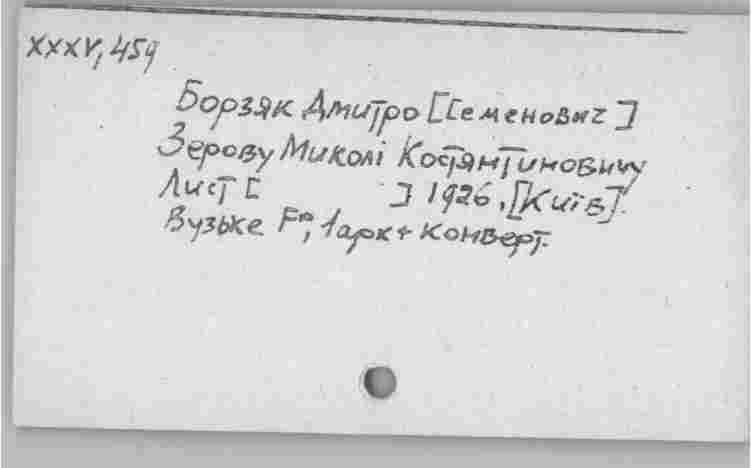 XXXV, 459
Борзяк Дмитро [Семенович]
Зерову Миколі Костянтиновичу
Лист [ ] 1926, [Київ].
Вузьке F°, 1 арк + конверт.